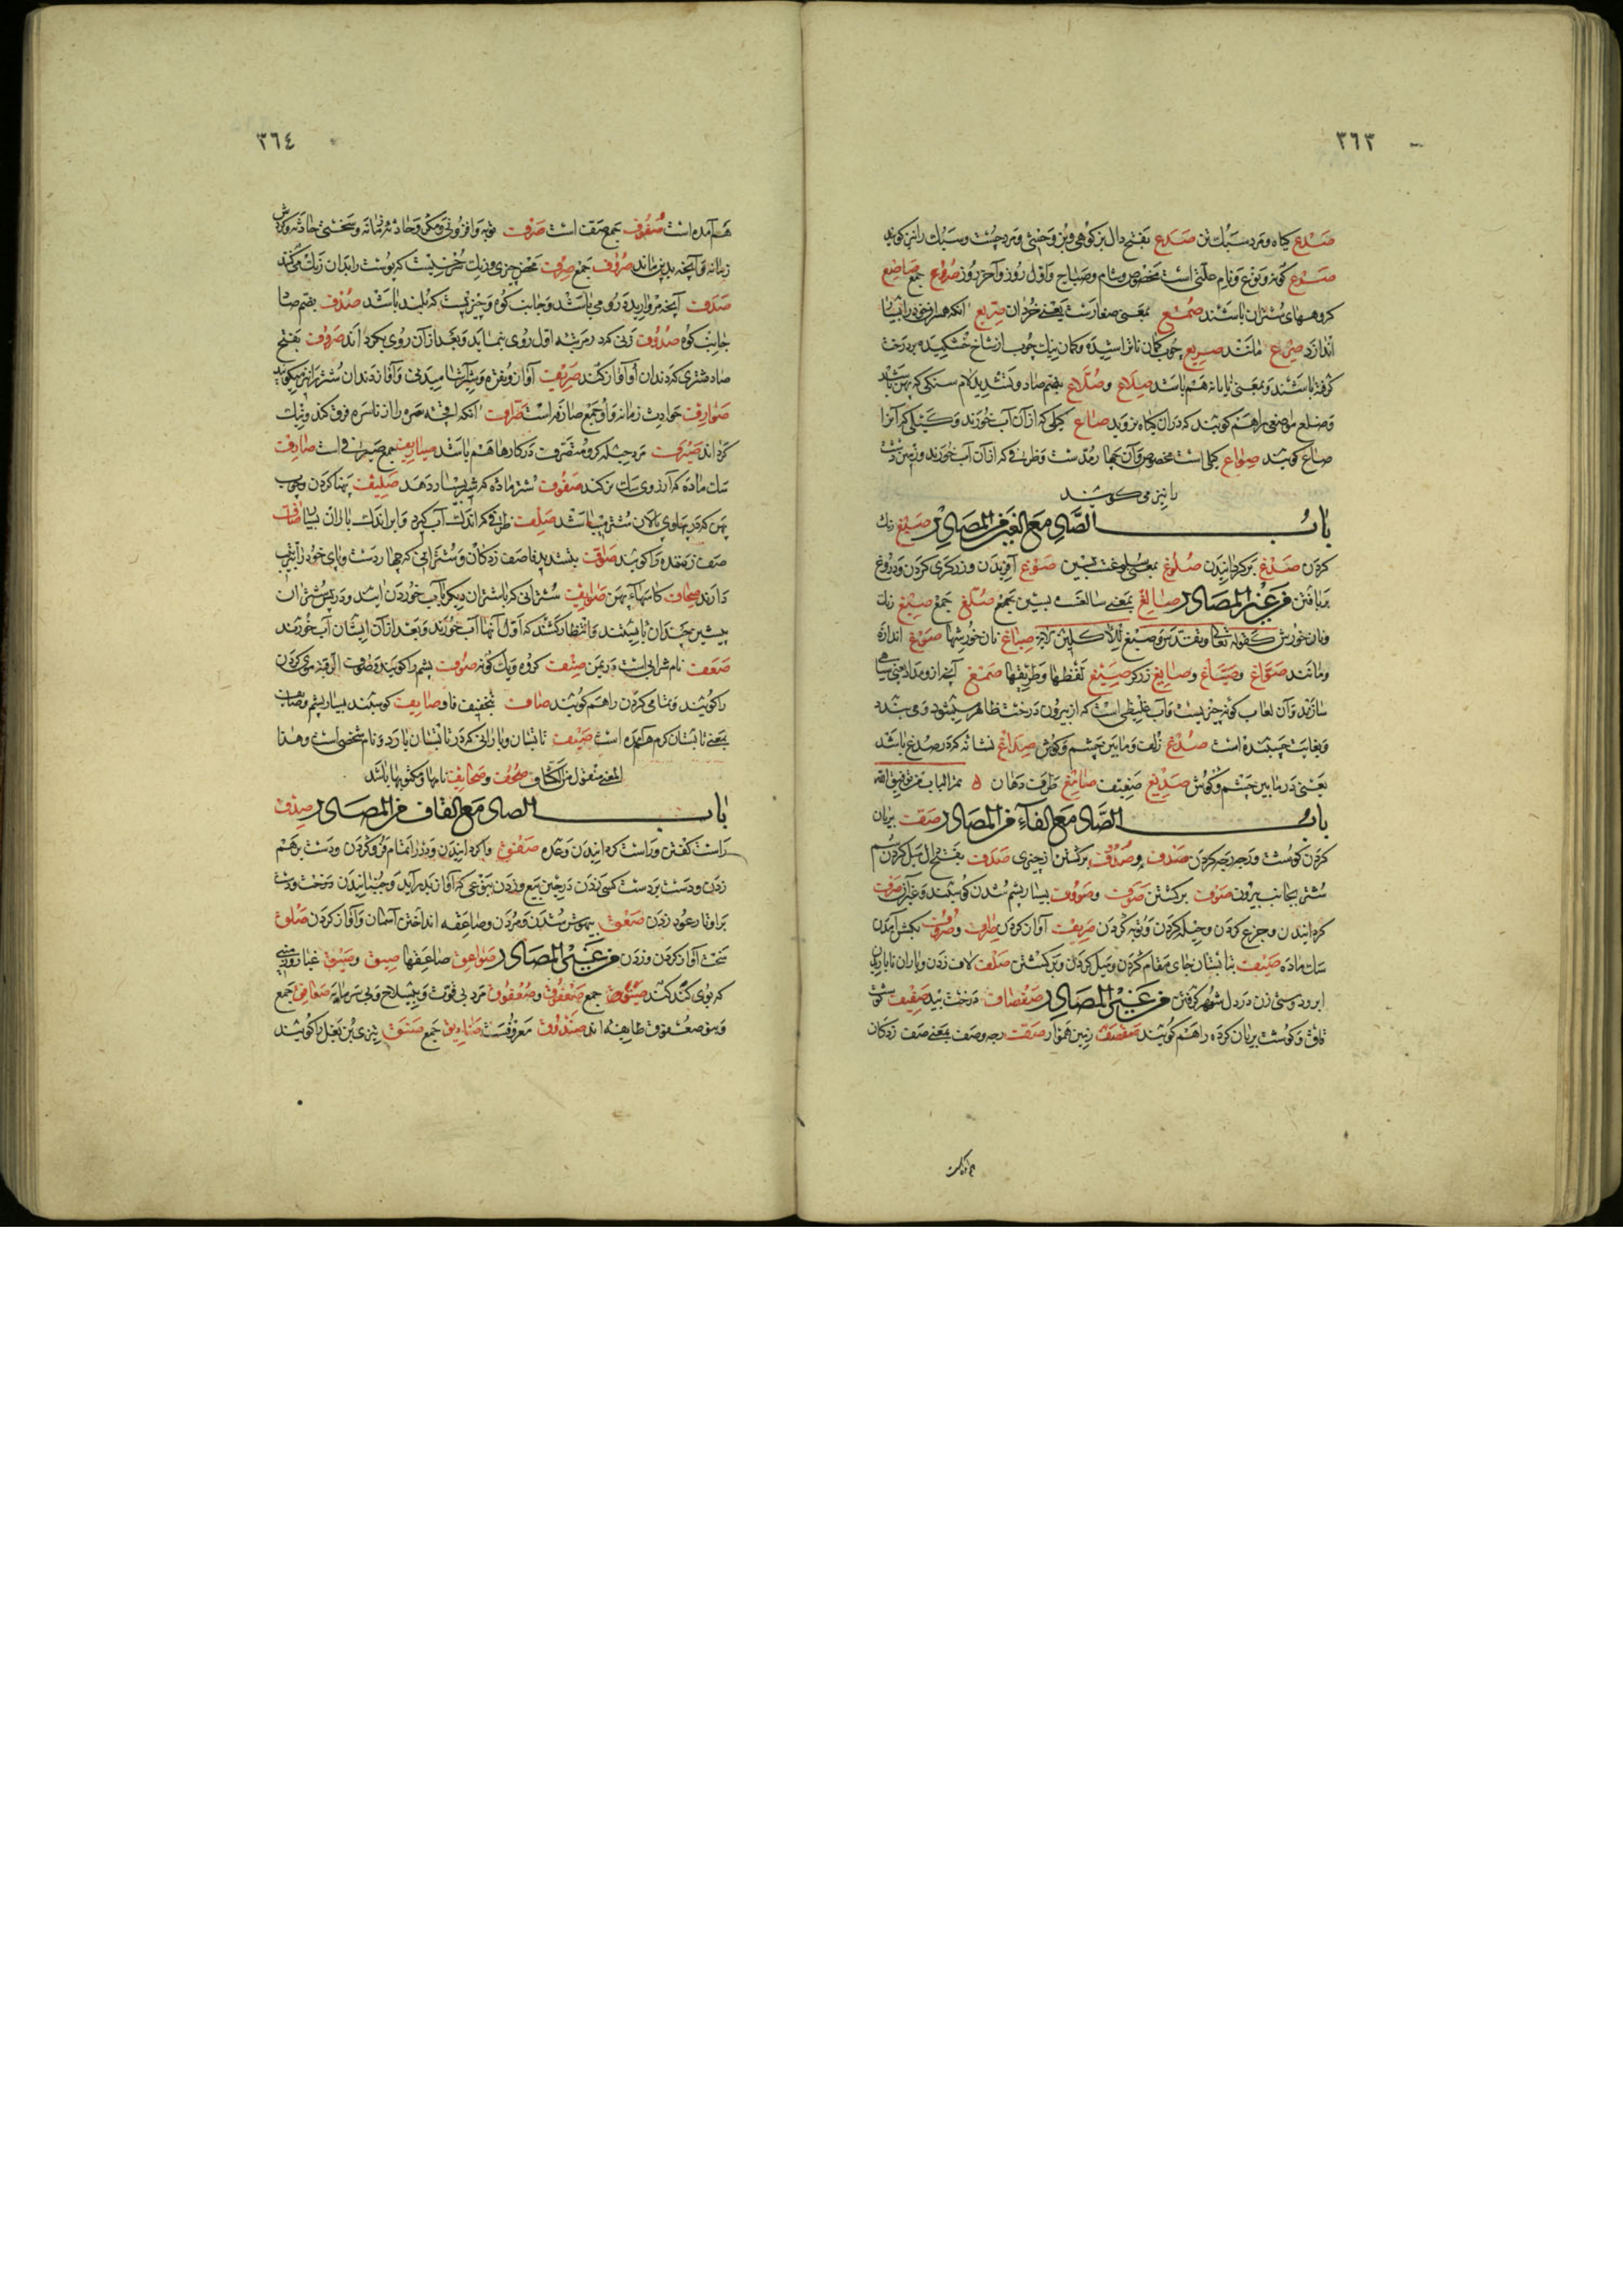 ٣٦٣
صدع کیاه و مرد سبک تن صدع بفتح دال بز کوهی و بز وحشی و مرد چست و سبک را نیز کویند
صوع کونه و نوع و نام حالتی است مخصوص بشام و صباح و اول روز و آخر روز صروع جمع صاضع
کروههای شتران باشند صمع بمعنی صغار است یعنی خردان صریع آنکه هم از خود را
اندازد صرع مانند صریع چوب کمان نا تراشیده و کمان نیک چوب از شاخ خشکیده بر درخت
کرفته باشند و بمعنی تابانه هم باشد صلاع و صلاع بضم صاد و تشدید لام سنکی که پهن باشد
و صلع مواضعی را هم کویند که در آن کیاه نروید صاع کیلی که از آن آب خورند و کیلی که آنرا
صاع کویند صواع کیلی است مخصوص و آن چهار مد است و ظرفی که از آن آب خورند و زمین پست
را نیز می کویند
باب الصاد مع الغین من المصادر صبغ رنک
کردن صدغ برکردانیدن صلوغ بمعنی سلوغ است بسین صوغ آفریدن و زرکری کردن و دروغ
بربافتن من غیر المصادر صالغ بمعنی سالغ است بسین صلغ جمع صبغ رنک
و نان خورش کقوله تعالی و تقدس و صبغ للآکلین صباغ نان خورشها صوغ اندازه
و مانند صواغ و صیاغ و صایغ زرکر صیغ لفظها و طریقها صمغ آنچه ازو مداد یعنی سیاهی
سازند و آن لعاب کونه چیزیست و آب غلیظی است که از بیرون درخت ظاهر میشود و می بندد
و بغایت چسبنده است صدغ زلف و مابین چشم و کوش صداغ نشانه که در صدغ باشد
یعنی در مابین چشم و کوش صدیغ ضعیف صامغ طرف دهان تم الباب من توفیق الله
باب الصاد مع الفاء من المصادر صفف بریان
کردن کوشت و رجه رجه کردن صدف و صدوف برکشتن از چیزی صدف بفتح دال میل کردن سم
شتر بجانب بیرون صوف برکشتن صوف و صووف بسیار پشم شدن کوسفند و غیر آن صرف
کردانیدن و جزع کردن و حیله کردن و توبه کردن صریف آواز کردن صراف و صروف بکشن آمدن
سک ماده صیف بتابستان جای مقام کردن و میل کردن و برکشتن صلف لاف زدن و باران ناباریدن
ابر و دوستی زن در دل شوهر نکرفتن من غیر المصادر صفصاف درخت بید صفیف کوشت
قاق و کوشت بریان کرده را هم کویند صفصف زمین هموار صفت رجه و صف بمعنی صف زدکان
٣٦٤
هم آمده است صفوف جمع صف است صرف توبه و افزونی و مکر و حادثه زمانه و سختی حادثه و کردش
زمانه و آنچه بدیز ماند صروف جمع صرف محض چیزی و رنک سرخیست که پوست را بدان رنک می کنند
صدف آنچه مروارید درومی باشد و جانب کوه و چیزیست که بلند باشد صدف بضم صاد
جانب کوه صدوف زنی که در مرتبه اول روی بنماید و بعد از آن روی بکرداند صروف بفتح
صاد شتری که دندان او آواز کند صریف آواز و نقره و شیر تا میدنی و آواز دندان شتر را نیز میکویند
صوارف حوادث زمانه و او جمع صارفه است صراف آنکه اقچه سره را از ناسره فرق کند و نیک
کرداند صیرف مرد حیله کر و متصرف در کارها هم باشد صیاریف جمع صیرفی است صارف
سک ماده که آرزوی سک نر کند صفوف شتر ماده که شیر بسیار دهد صلیف پهنا کردن و چوب
پهن که در پهلوی پالان شتر میباشد صلف ظرفی که اندک آب کیرد و ابر اندک باران بسیار صاف
صف زننده را کویند صواف بتشدید فا صف زدکان و شترانی که چهار دست و پای خود را ترتیب
دارند صحاف کاسهاء پهن صوایف شترانی که با شتران دیکر بآب خوردن آیند و در پس شتران
پیشین چندان بایستند و انتظار کشند که اول آنها آب خورند و بعد از آن ایشان آب خورند
صعف نام شرابی است در یمن صنف کروه و یک کونه صوف پشم را کویند و صوف الرقبه موی کردن
را کویند و تمامی کردن را هم کویند صاف بتخفیف فا و صایف کوسفند بسیار پشم و صایف
یعنی تابستان کرم هم آمده است صیف تابستان و بارانی که در تابستان بارد و نام شخصی است و هذا
المعنی منقول من الکشاف صحف و صحایف نامها و مکتوبها باشد
باب الصاد مع القاف من المصادر صدق
راست کفتن و راست کردانیدن وعده صفق واکردانیدن و در را تمام فرو کردن و دست بر هم
زدن و دست بر دست کسی زدن در حین بیع و زدن بنوعی که آواز بدر آید و جنبانیدن درخت و دست
بر اوتار عود زدن صعق بیهوش شدن و مردن و صاعقه انداختن آسمان و آواز کردن صلق
سخت آواز کردن و زدن من غیر المصادر صواعق صاعقها صیق و صیق غبار و بوی
که بوی کند صعافق جمع صعفوق و صعفوق مرد بی قوت و بی سلاح و بی سرمایه صعافق جمع
و بنو صعفوق طایفه اند صندوق معروفست صنادیق جمع صنق تیزی بن بغل را کویند